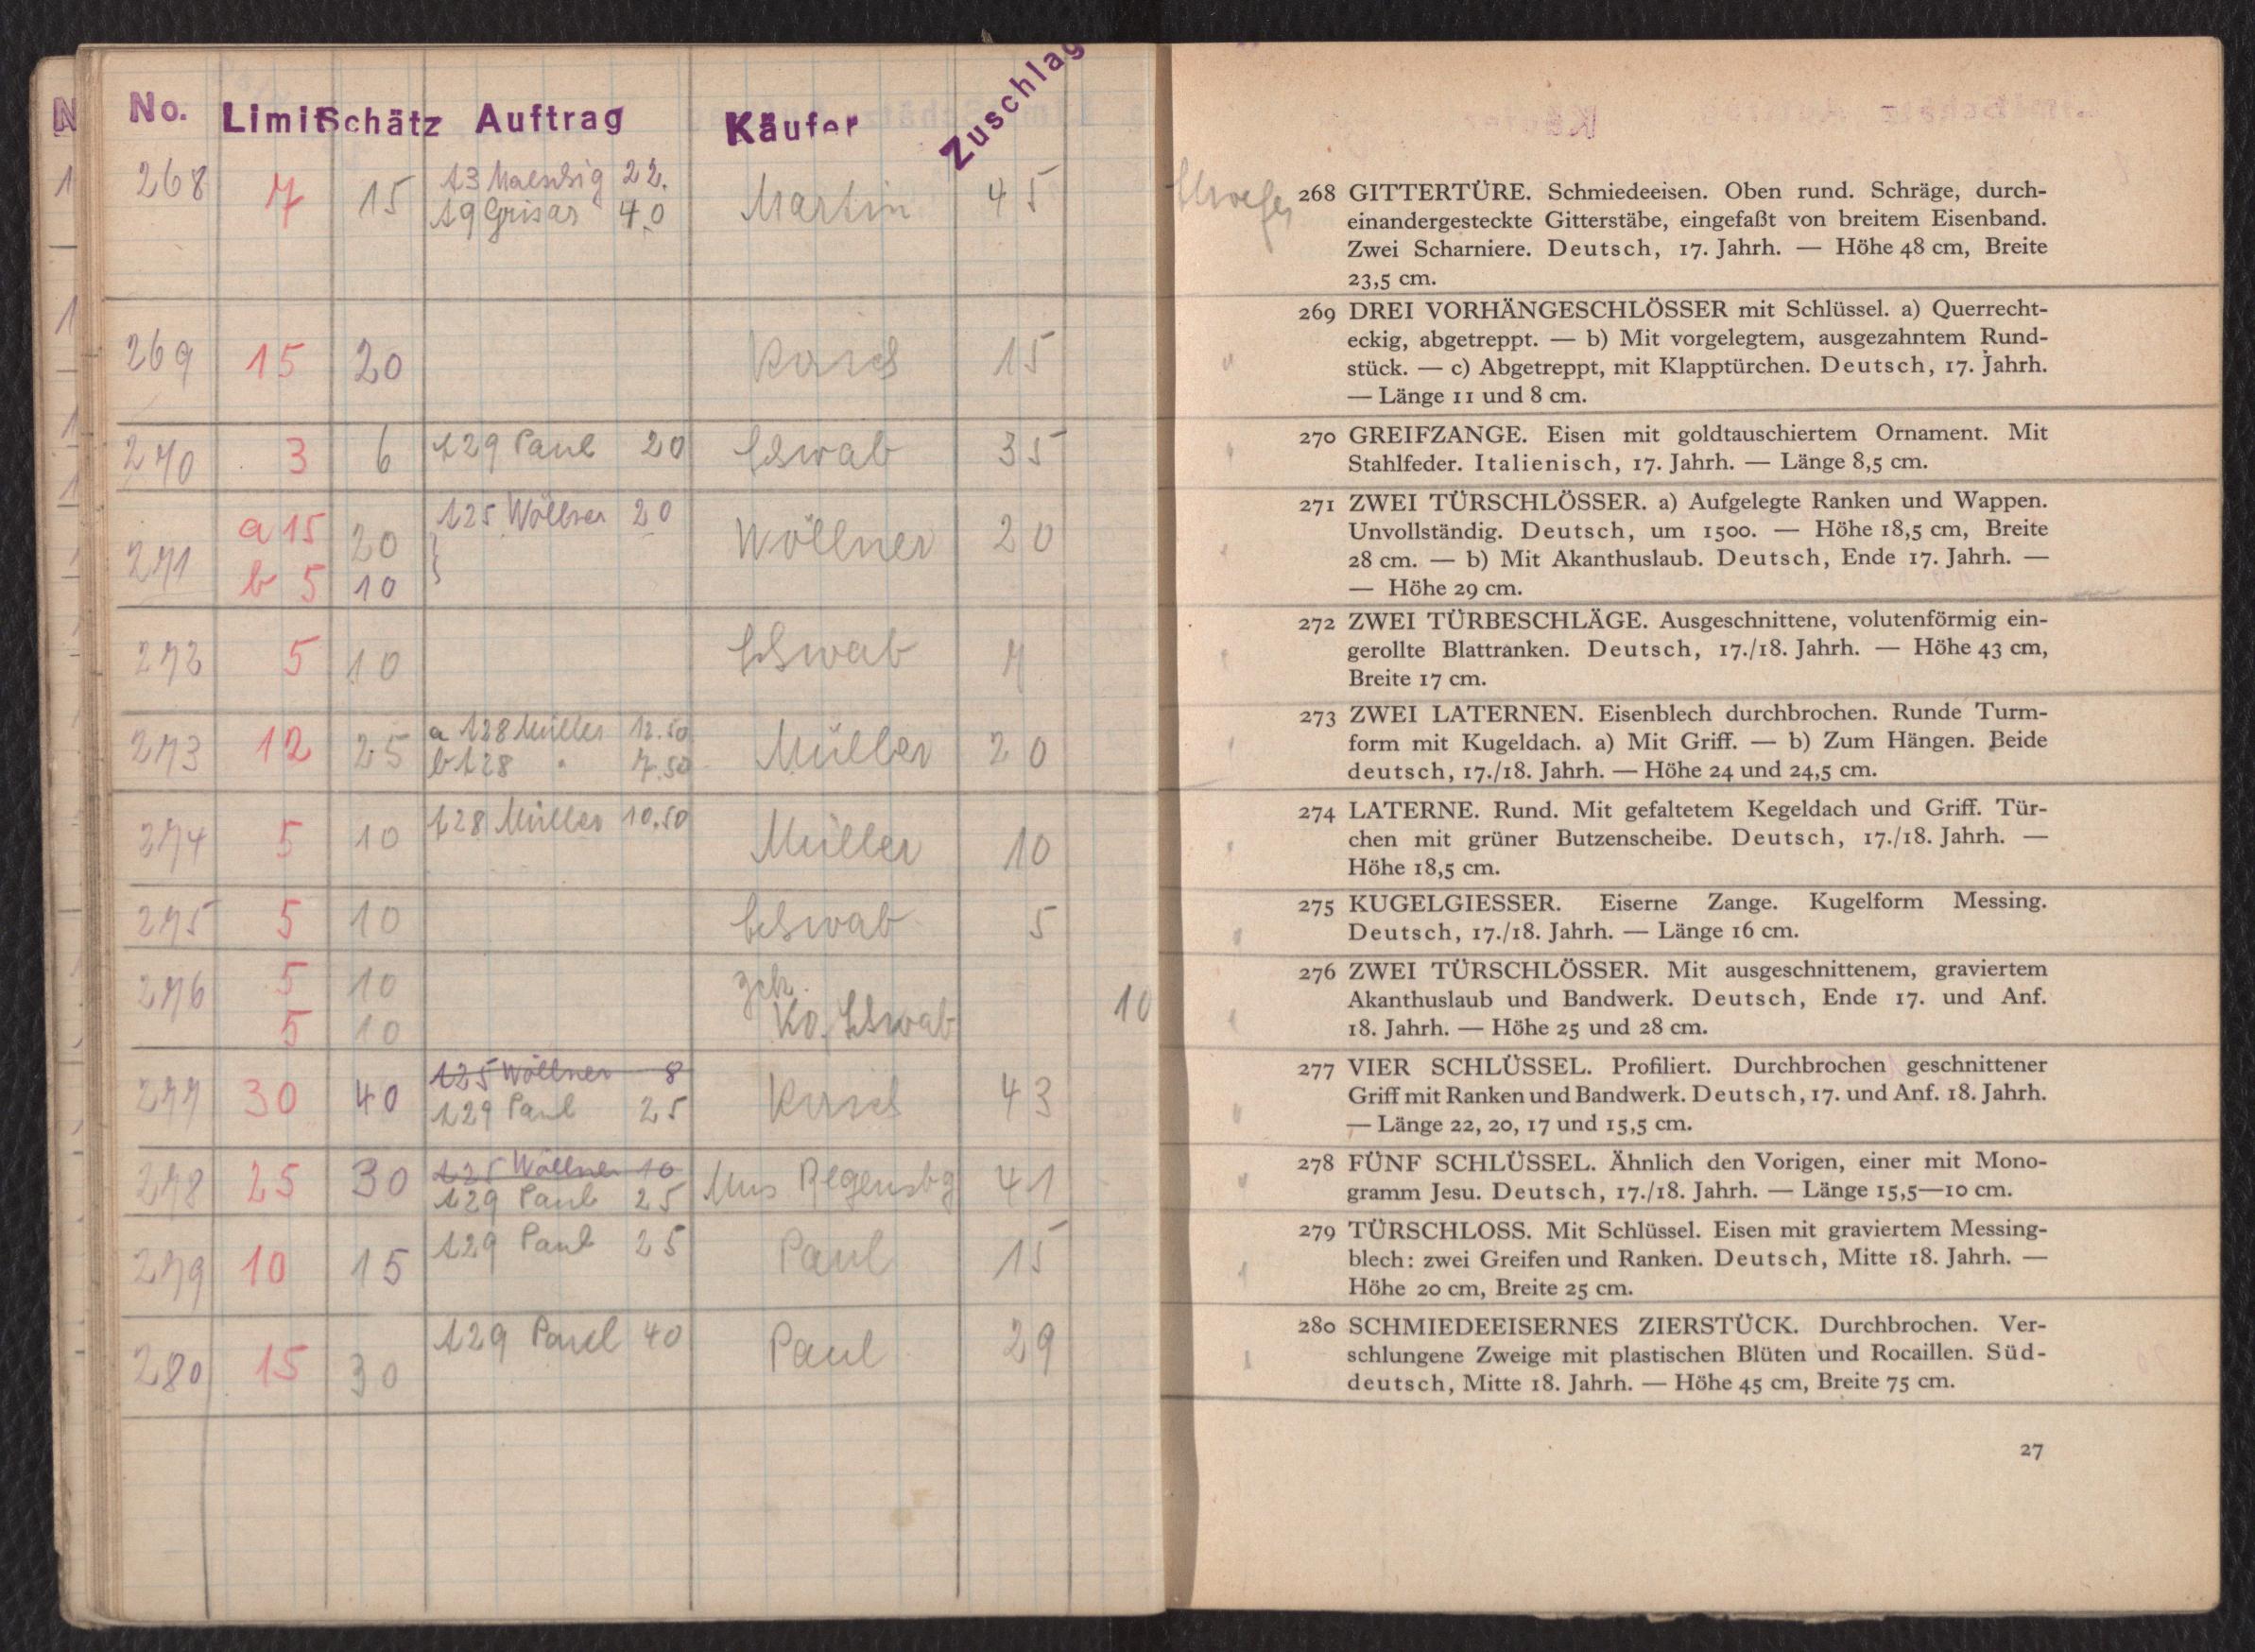 No. Limit Schätz Auftrag Käufer Zuschlag
268 7 15 Martin 45
A3 22.
A9 Grisar 40
269 15 20 15
270 3 6 A29 Paul 20 35
271 a 15 20 A25 Wöllner 20 Wöllner 20
b 5 10
272 5 10 7
273 12 25 a A28 Müller 12.50 Müller 20
b A28 " 7.50
274 5 10 A28 Müller 10.50 Müller 10
275 5 10 5
276 5 10
5 10 10
277 30 40 A25 Wöllner 8 43
A29 Paul 25
278 25 30 A25 Wöllner 10 Mus Regensbg 41
A29 Paul 25
279 10 15 A29 Paul 25 Paul 15
280 15 30 A29 Paul 40 Paul 29
268 GITTERTÜRE. Schmiedeeisen. Oben rund. Schräge, durch-
einandergesteckte Gitterstäbe, eingefaßt von breitem Eisenband.
Zwei Scharniere. Deutsch, 17. Jahrh. — Höhe 48 cm, Breite
23,5 cm.
269 DREI VORHÄNGESCHLÖSSER mit Schlüssel. a) Querrecht-
eckig, abgetreppt. — b) Mit vorgelegtem, ausgezahntem Rund-
stück. — c) Abgetreppt, mit Klapptürchen. Deutsch, 17. Jahrh.
— Länge 11 und 8 cm.
270 GREIFZANGE. Eisen mit goldtauschiertem Ornament. Mit
Stahlfeder. Italienisch, 17. Jahrh. — Länge 8,5 cm.
271 ZWEI TÜRSCHLÖSSER. a) Aufgelegte Ranken und Wappen.
Unvollständig. Deutsch, um 1500. — Höhe 18,5 cm, Breite
28 cm. — b) Mit Akanthuslaub. Deutsch, Ende 17. Jahrh. —
— Höhe 29 cm.
272 ZWEI TÜRBESCHLÄGE. Ausgeschnittene, volutenförmig ein-
gerollte Blattranken. Deutsch, 17./18. Jahrh. — Höhe 43 cm,
Breite 17 cm.
273 ZWEI LATERNEN. Eisenblech durchbrochen. Runde Turm-
form mit Kugeldach. a) Mit Griff. — b) Zum Hängen. Beide
deutsch, 17./18. Jahrh. — Höhe 24 und 24,5 cm.
274 LATERNE. Rund. Mit gefaltetem Kegeldach und Griff. Tür-
chen mit grüner Butzenscheibe. Deutsch, 17./18. Jahrh. —
Höhe 18,5 cm.
275 KUGELGIESSER. Eiserne Zange. Kugelform Messing.
Deutsch, 17./18. Jahrh. — Länge 16 cm.
276 ZWEI TÜRSCHLÖSSER. Mit ausgeschnittenem, graviertem
Akanthuslaub und Bandwerk. Deutsch, Ende 17. und Anf.
18. Jahrh. — Höhe 25 und 28 cm.
277 VIER SCHLÜSSEL. Profiliert. Durchbrochen geschnittener
Griff mit Ranken und Bandwerk. Deutsch, 17. und Anf. 18. Jahrh.
— Länge 22, 20, 17 und 15,5 cm.
278 FÜNF SCHLÜSSEL. Ähnlich den Vorigen, einer mit Mono-
gramm Jesu. Deutsch, 17./18. Jahrh. — Länge 15,5—10 cm.
279 TÜRSCHLOSS. Mit Schlüssel. Eisen mit graviertem Messing-
blech: zwei Greifen und Ranken. Deutsch, Mitte 18. Jahrh. —
Höhe 20 cm, Breite 25 cm.
280 SCHMIEDEEISERNES ZIERSTÜCK. Durchbrochen. Ver-
schlungene Zweige mit plastischen Blüten und Rocaillen. Süd-
deutsch, Mitte 18. Jahrh. — Höhe 45 cm, Breite 75 cm.
27